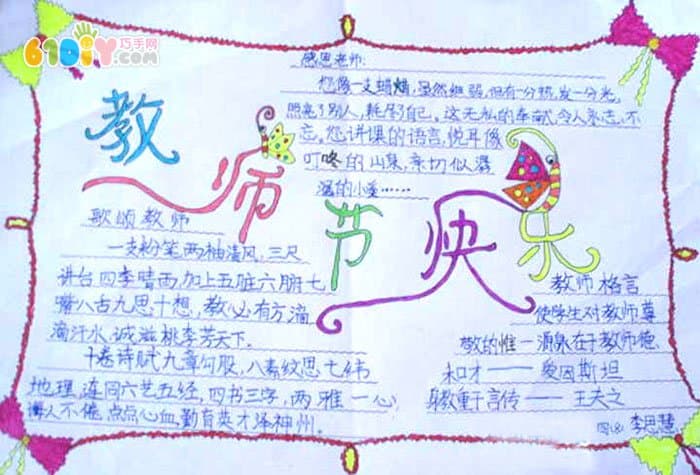 61DIY巧手网
教师节快乐
感恩老师:
您像一支蜡烛,虽然细弱,但有一分热,发一分光,
照亮了别人,耗尽了自己。这无私的奉献,令人永志不
忘。您讲课的语言,悦耳像
叮咚的山泉,亲切似潺
潺的小溪……
歌颂教师
一支粉笔两袖清风,三尺
讲台四季晴雨,加上五脏六腑七
嘴八舌九思十想,教必有方滴
滴汗水,诚滋桃李芳天下.
十卷诗赋九章勾股,八索文思七纬
地理,连同六艺五经,四书三字,两雅一心
诲人不倦,点点心血,勤育英才泽神州.
教师格言
使学生对教师尊
敬的惟一源泉在于教师德
和才——爱因斯坦
身教重于言传——王夫之
李思慧